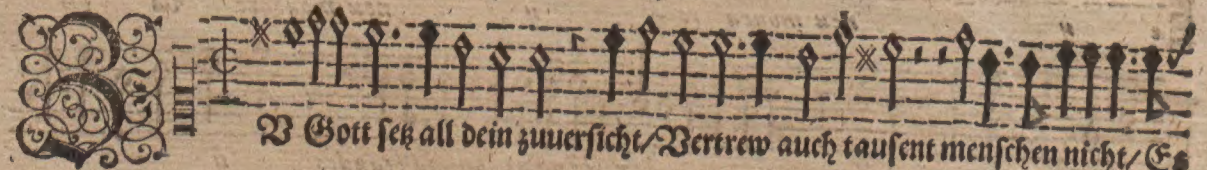 ZV Gott setz all dein zuuersicht/Vertrew auch tausent menschen nicht/ Es